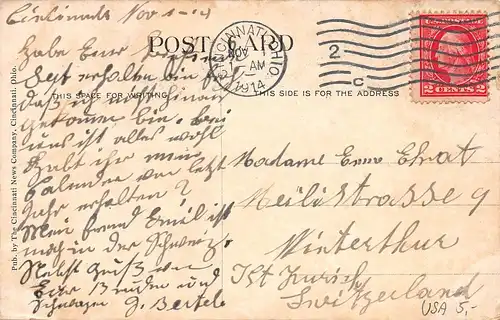 Cincinnati Nov 1-14
POST CARD
CINCINNATI, OHIO.
NOV
AM
1914
2
C
U.S. POSTAGE
2 CENTS 2
THIS SPACE FOR WRITING
THIS SIDE IS FOR THE ADDRESS
Pub. by The Cincinnati News Company, Cincinnati, Ohio.
Habe Euer
erhalten bin
daß ich noch
gekomen bin. bei
uns ist alles wohl
Habt ihr mein
Calender von letzt
Jahr erhalten?
Mein freund Emil ist
noch in der Schweiz.
Nebst Gruß von
Euer Bruder und
Schwager G. Bertele
Madame Erne Ehrat
Meilistrasse 9
Winterthur
Kt Zurich
Switzerland
USA 5,-